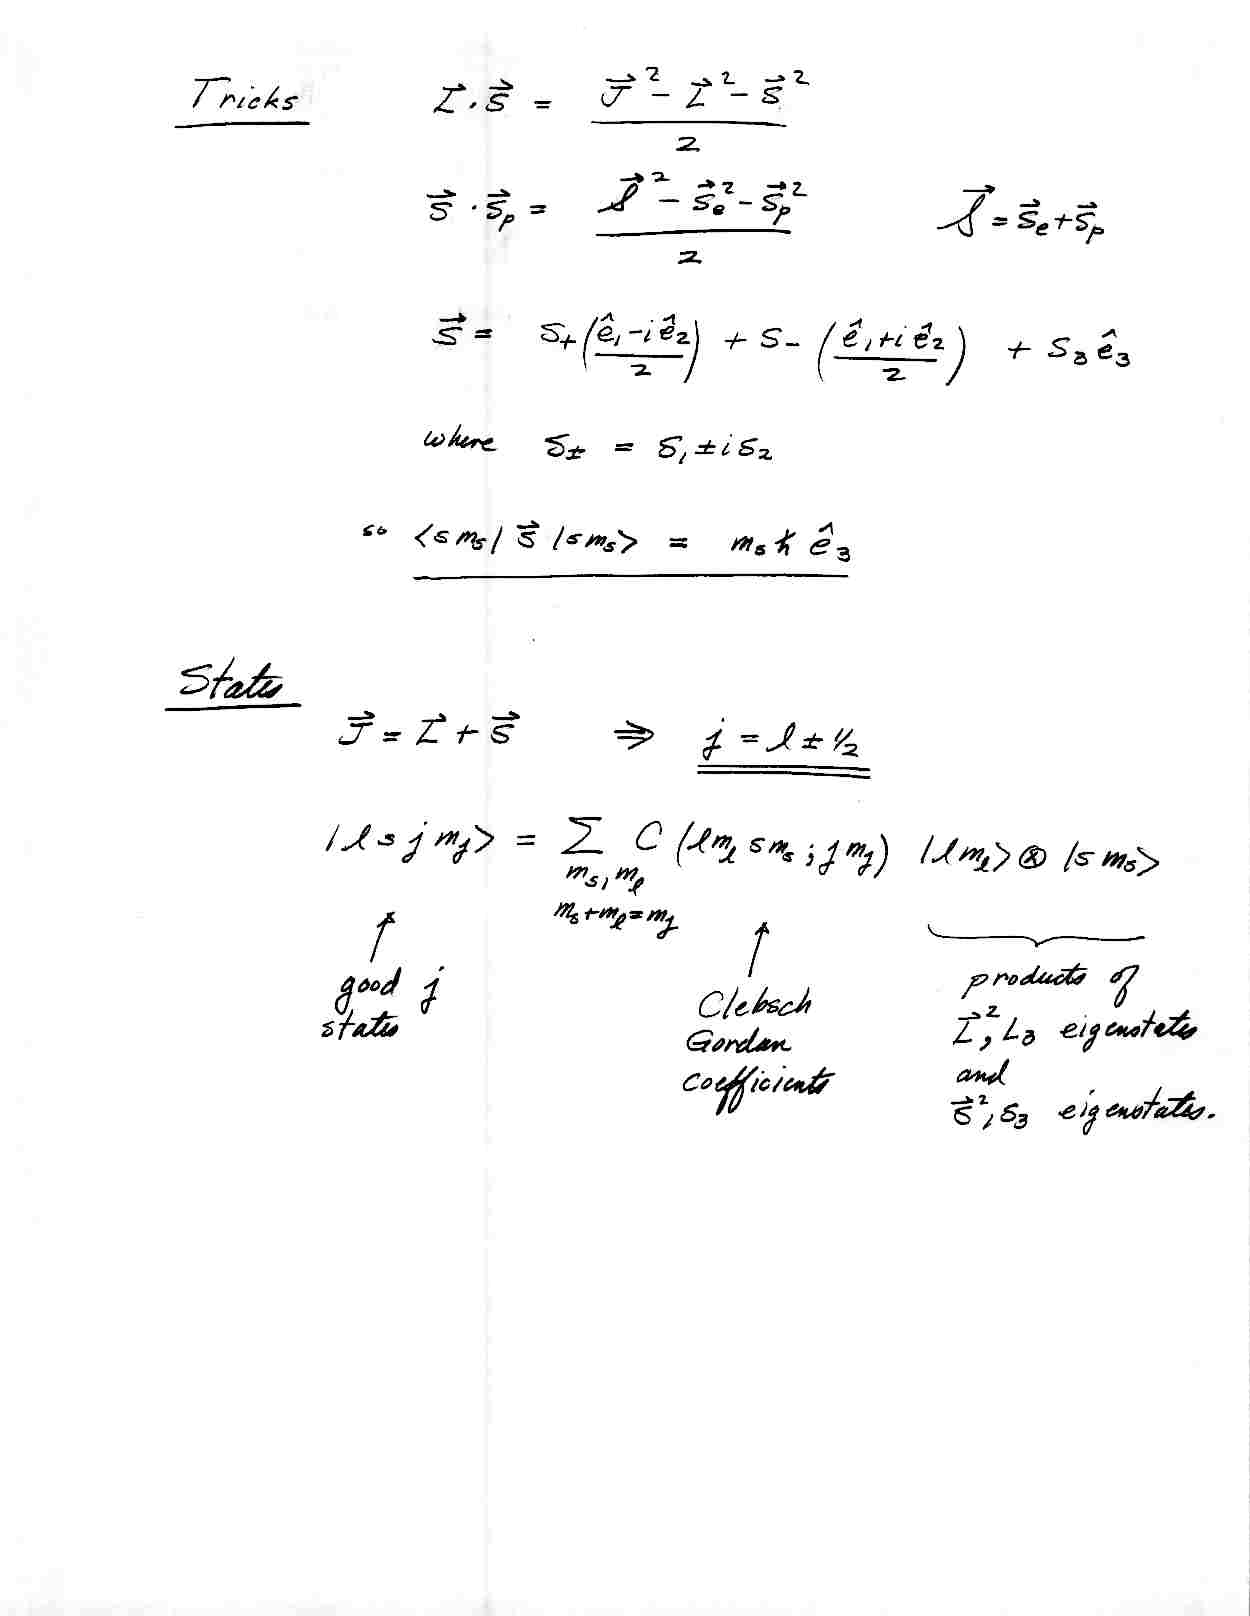 Tricks L⃗·S⃗ = (J⃗² − L⃗² − S⃗²)/2
S⃗·S⃗ₚ = (𝒮⃗² − S⃗ₑ² − S⃗ₚ²)/2 𝒮⃗ = S⃗ₑ + S⃗ₚ
S⃗ = S₊((ê₁ − iê₂)/2) + S₋((ê₁ + iê₂)/2) + S₃ê₃
where S± = S₁ ± iS₂
so <s mₛ| S⃗ |s mₛ> = mₛħ ê₃
States
J⃗ = L⃗ + S⃗ ⇒ j = l ± 1/2
|l s j m_j> = Σ C(l m_l s mₛ ; j m_j) |l m_l> ⊗ |s mₛ>
mₛ, m_l
mₛ + m_l = m_j
↑ ↑
good j
states
Clebsch
Gordan
coefficients
products of
L⃗², L₃ eigenstates
and
S⃗², S₃ eigenstates.